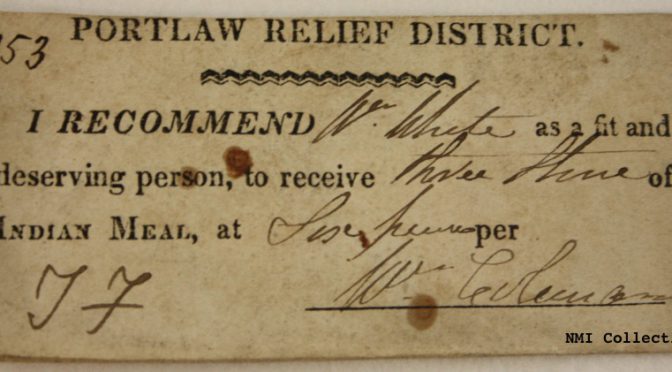 53
PORTLAW RELIEF DISTRICT.
I RECOMMEND Wm White as a fit and
deserving person, to receive three Stone of
INDIAN MEAL, at Six pence per
Wm Coleman
NMI Collecti